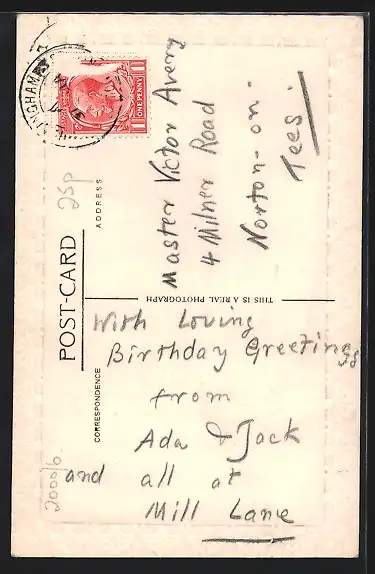 POST-CARD
CORRESPONDENCE
ADDRESS
THIS IS A REAL PHOTOGRAPH
ONE PENNY
25p
2000/b
With Loving
Birthday Greetings
from
Ada & Jack
and all at
Mill Lane
Master Victor Avery
4 Milner Road
Norton-on-
Tees.